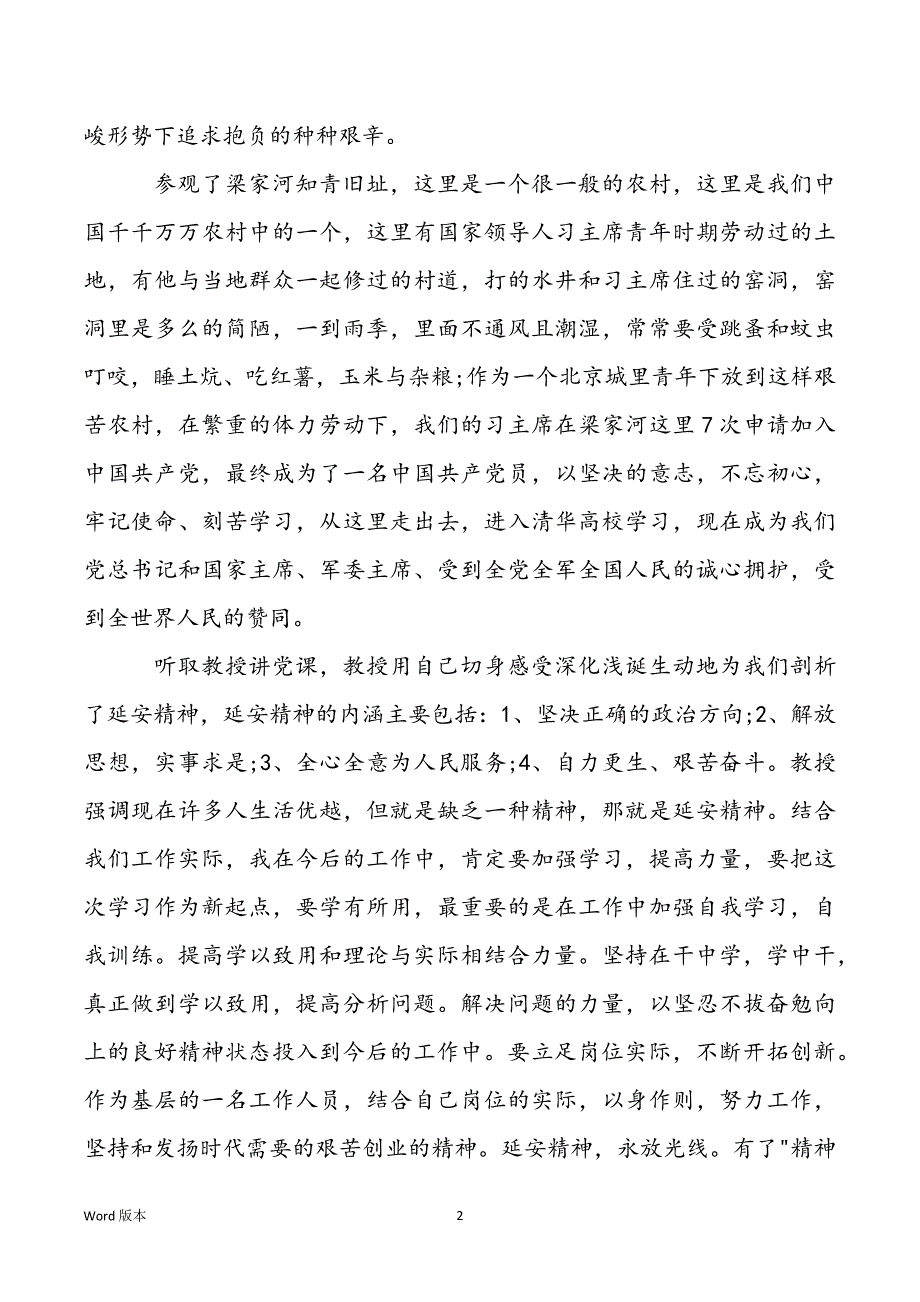 峻形势下追求抱负的种种艰辛。
参观了梁家河知青旧址，这里是一个很一般的农村，这里是我们中
国千千万万农村中的一个，这里有国家领导人习主席青年时期劳动过的土
地，有他与当地群众一起修过的村道，打的水井和习主席住过的窑洞，窑
洞里是多么的简陋，一到雨季，里面不通风且潮湿，常常要受跳蚤和蚊虫
叮咬，睡土炕、吃红薯，玉米与杂粮;作为一个北京城里青年下放到这样艰
苦农村，在繁重的体力劳动下，我们的习主席在梁家河这里 7 次申请加入
中国共产党，最终成为了一名中国共产党员，以坚决的意志，不忘初心，
牢记使命、刻苦学习，从这里走出去，进入清华高校学习，现在成为我们
党总书记和国家主席、军委主席、受到全党全军全国人民的诚心拥护，受
到全世界人民的赞同。
听取教授讲党课，教授用自己切身感受深化浅诞生动地为我们剖析
了延安精神，延安精神的内涵主要包括：1、坚决正确的政治方向;2、解放
思想，实事求是;3、全心全意为人民服务;4、自力更生、艰苦奋斗。教授
强调现在许多人生活优越，但就是缺乏一种精神，那就是延安精神。结合
我们工作实际，我在今后的工作中，肯定要加强学习，提高力量，要把这
次学习作为新起点，要学有所用，最重要的是在工作中加强自我学习，自
我训练。提高学以致用和理论与实际相结合力量。坚持在干中学，学中干，
真正做到学以致用，提高分析问题。解决问题的力量，以坚忍不拔奋勉向
上的良好精神状态投入到今后的工作中。要立足岗位实际，不断开拓创新。
作为基层的一名工作人员，结合自己岗位的实际，以身作则，努力工作，
坚持和发扬时代需要的艰苦创业的精神。延安精神，永放光线。有了"精神
Word 版本 2